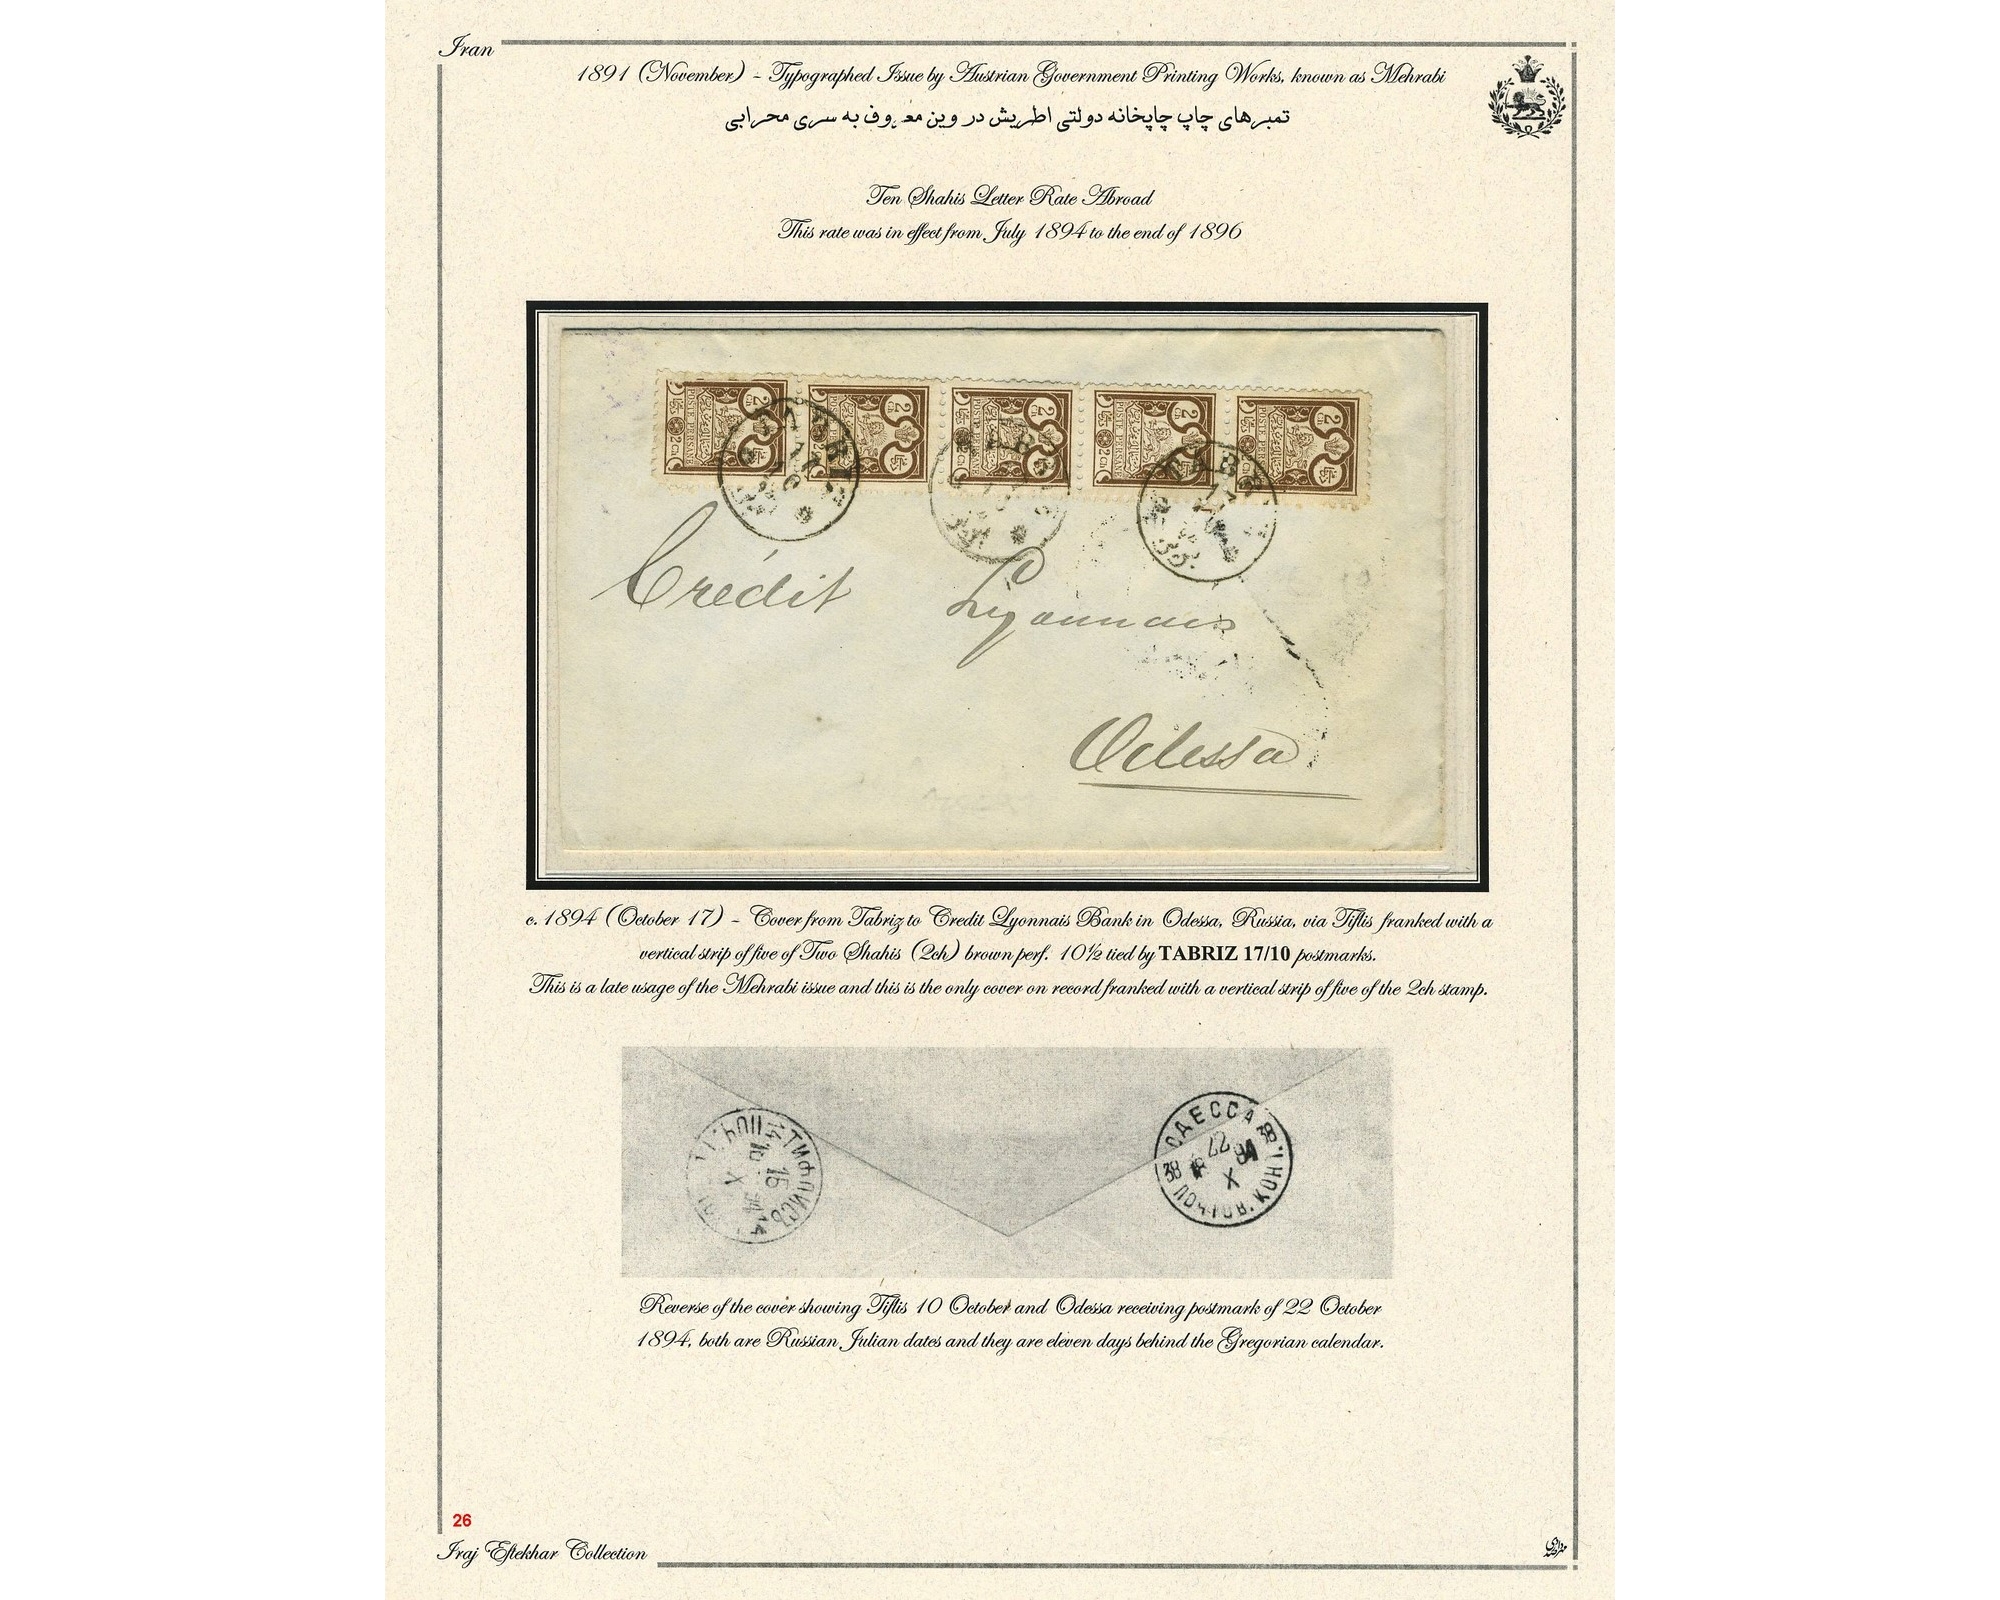 Iran
1891 (November) - Typographed Issue by Austrian Government Printing Works, known as Mehrabi
تمبرهای چاپ چاپخانه دولتی اطریش در وین معروف به سری محرابی
Ten Shahis Letter Rate Abroad
This rate was in effect from July 1894 to the end of 1896
2 Ch
2 Ch
2 Ch
2 Ch
2 Ch
TABRIZ
Crédit Lyonnais
Odessa
c. 1894 (October 17) - Cover from Tabriz to Credit Lyonnais Bank in Odessa, Russia, via Tiflis franked with a
vertical strip of five of Two Shahis (2ch) brown perf. 10½ tied by TABRIZ 17/10 postmarks.
This is a late usage of the Mehrabi issue and this is the only cover on record franked with a vertical strip of five of the 2ch stamp.
ТИФЛИСЪ
ОДЕССА
22
X
Reverse of the cover showing Tiflis 10 October and Odessa receiving postmark of 22 October
1894, both are Russian Julian dates and they are eleven days behind the Gregorian calendar.
26
Iraj Eftekhar Collection